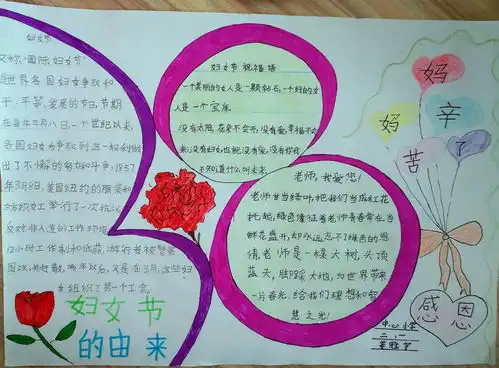 妇女节
又称"国际妇女节"
是世界各国妇女争取和
平、平等、发展的节日,节期
在每年三月八日,一个世纪以来,
各国妇女为争取到这一权利做
出了不懈的努力和斗争:1857
年3月8日,美国纽约的服装和
纺织女工举行了一次抗议
反对非人道的工作环境,
12小时工作制和低薪,游行者被警察
围攻,并赶散,两年以后,又是在3月,这些妇
女组织了第一个工会
妇女节
的由来
妇女节祝福语
一个美丽的女人是一颗钻石,一个好的女
人是一个宝库
没有太阳,花朵不会开,没有爱,幸福不会
来;没有妇女也就没有爱,没有你我
不知道什么叫未来
老师,我爱您!
老师甘当绿叶,把我们当成红花
托起,绿色象征着老师青春常在,当
鲜花盛开,却永远忘不了绿色的恩
情,老师是一棵大树,头顶
蓝天,脚踩大地,为世界带来
一片春光,给我们理想和智
慧之光!
妈
妈
辛
苦
了
感恩
中心小学
二、一